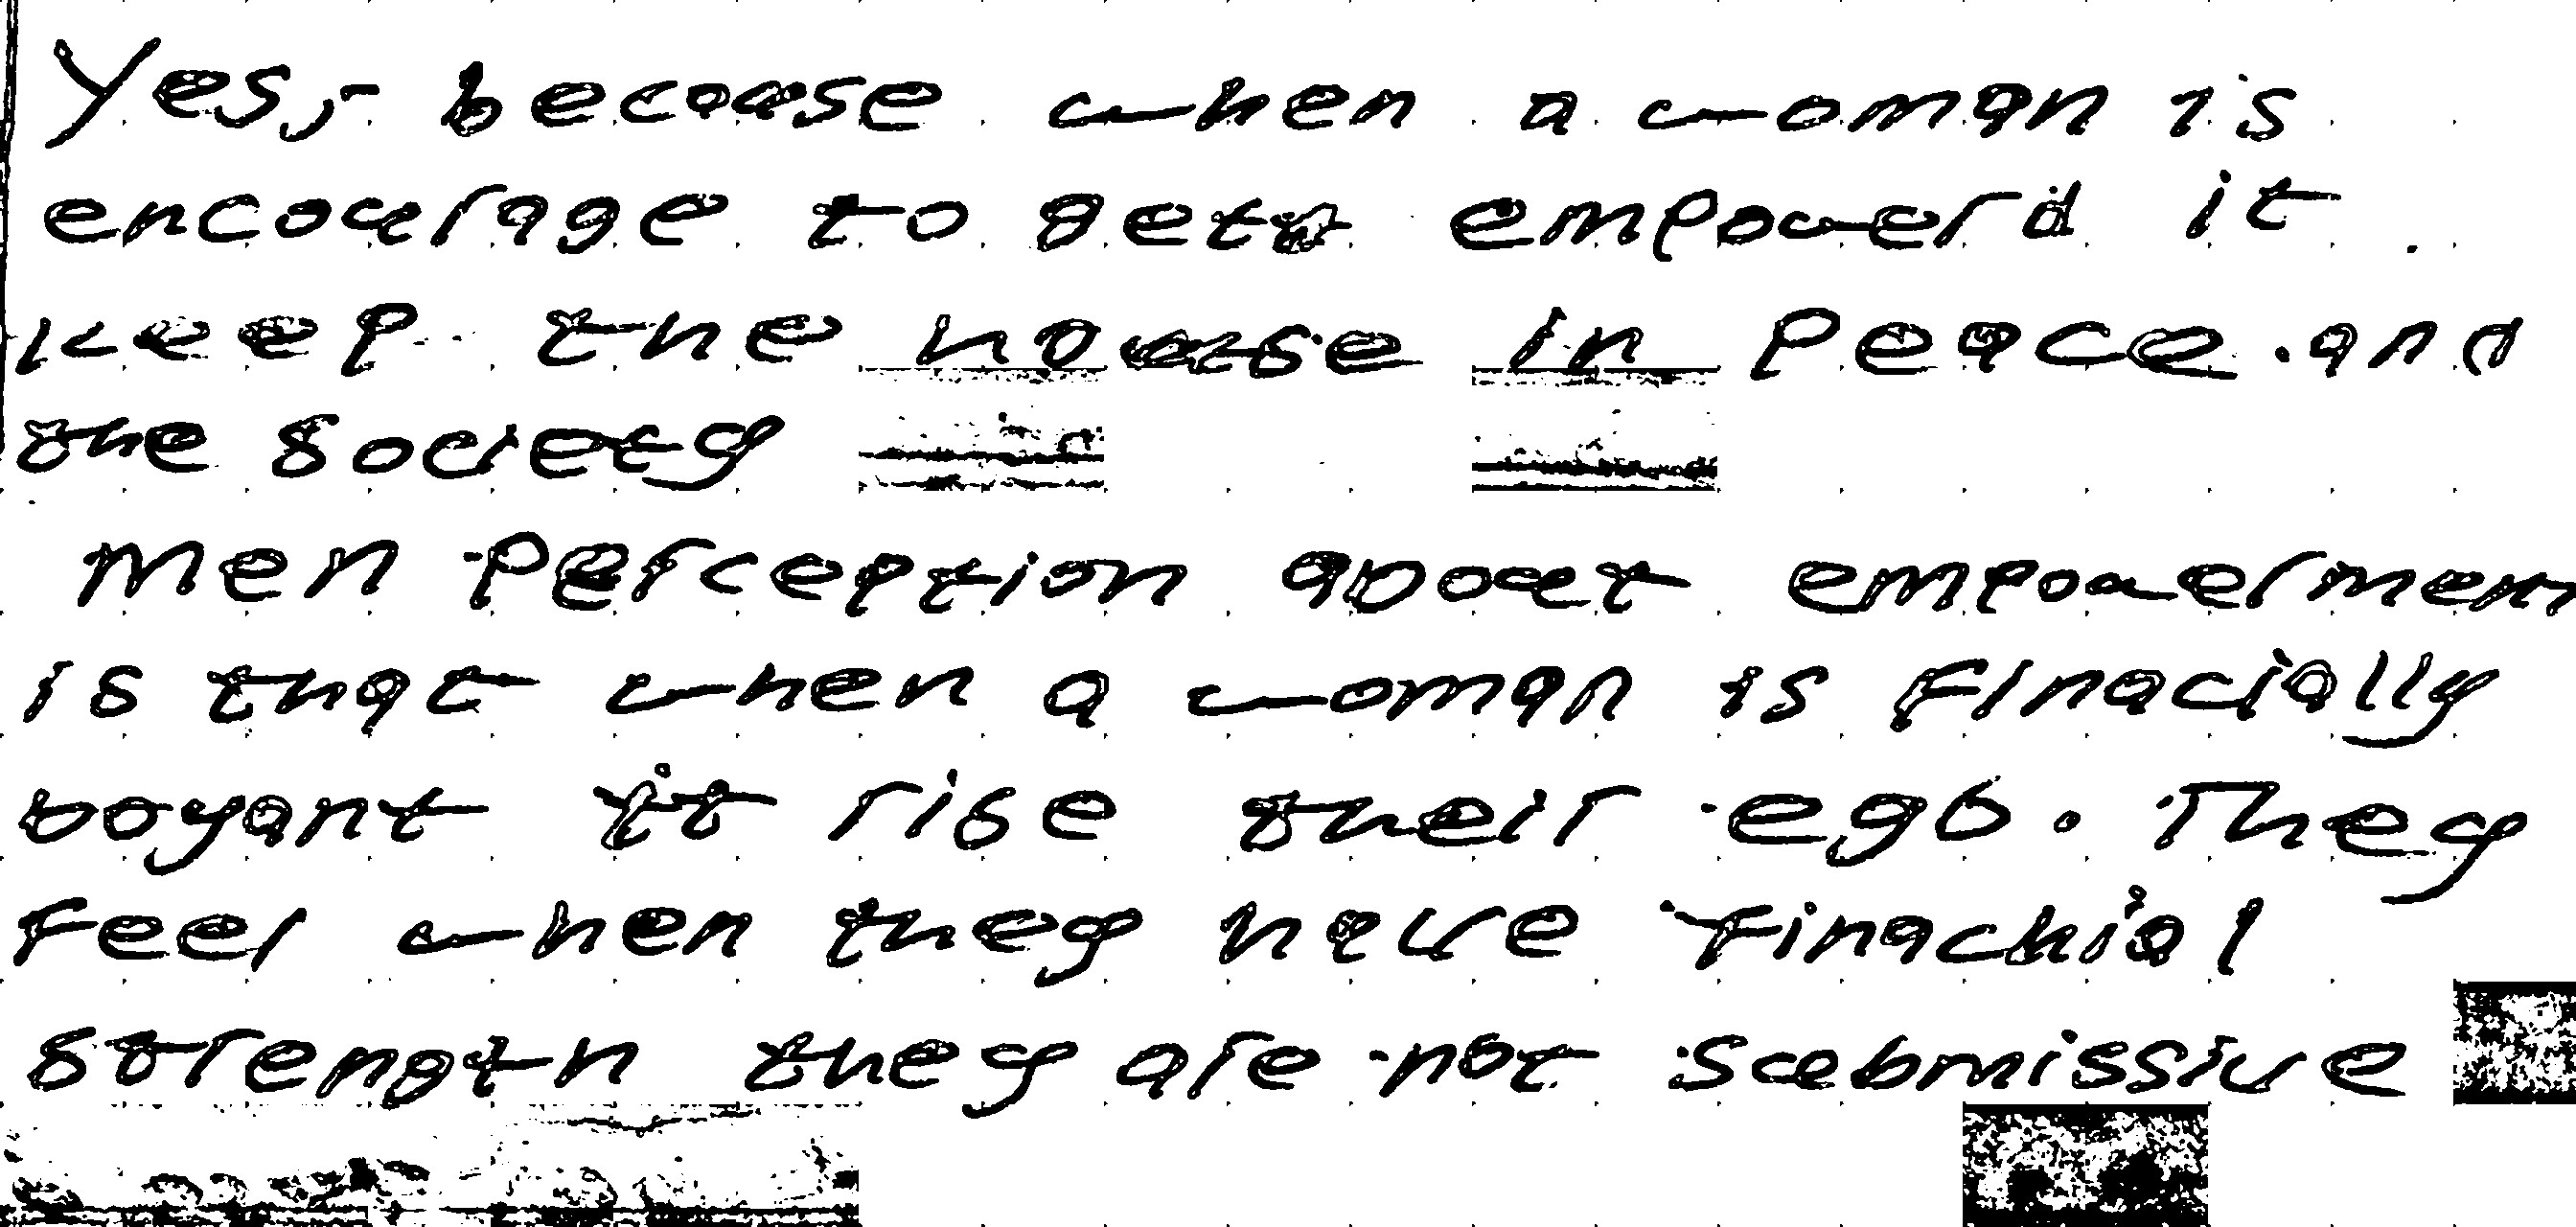 Yes, becoase when a woman is
encourage to get empowerd it
keep the house in peace and
the society
men perception about empowerment
is that when a woman is finacially
boyant it rise their ego. They
feel when they have finachial
strength they are not submissive